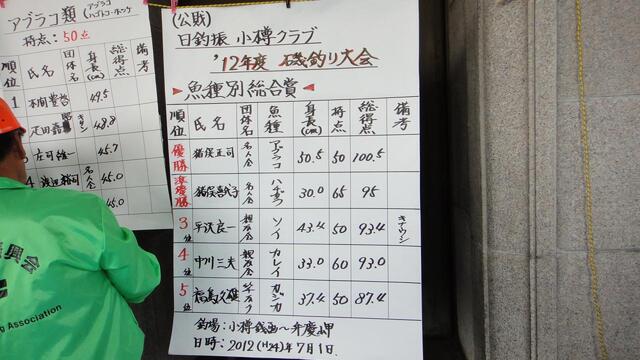 アブラコ類 (アブラコ ハゴトコ・ホッケ
持点：50点
順位 氏名 団体名 身長(cm) 総得点 備考
1 49.5
48.8
庄司雄一 45.7
4 渡辺裕司 名人会 45.0
45.0
振興会
ng Association
(公財)
日釣振 小樽クラブ
'12年度 磯釣り大会
魚種別総合賞
順位 氏名 団体名 魚種 身長(cm) 持点 総得点 備考
優勝 猪俣正司 名人会 アブラコ 50.5 50 100.5
準優勝 猪俣喜代子 名人会 ハチガラ 30.0 65 95
3位 平沢良一 親友会 ソイ 43.4 50 93.4
4位 中川三夫 親友会 カレイ 33.0 60 93.0
5位 福島久雄 カジカ 37.4 50 87.4
釣場：小樽銭函〜弁慶岬
日時：2012(H24)年7月1日.